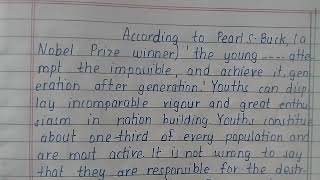 According to Pearl S. Buck, (a
Nobel Prize winner) 'the young .... atte-
mpt the impossible, and achieve it, gen-
eration after generation.' Youths can disp-
lay incomparable vigour and great enthu
siasm in nation building. Youths constitute
about one-third of every population and
are most active. It is not wrong to say
that they are responsible for the destr-